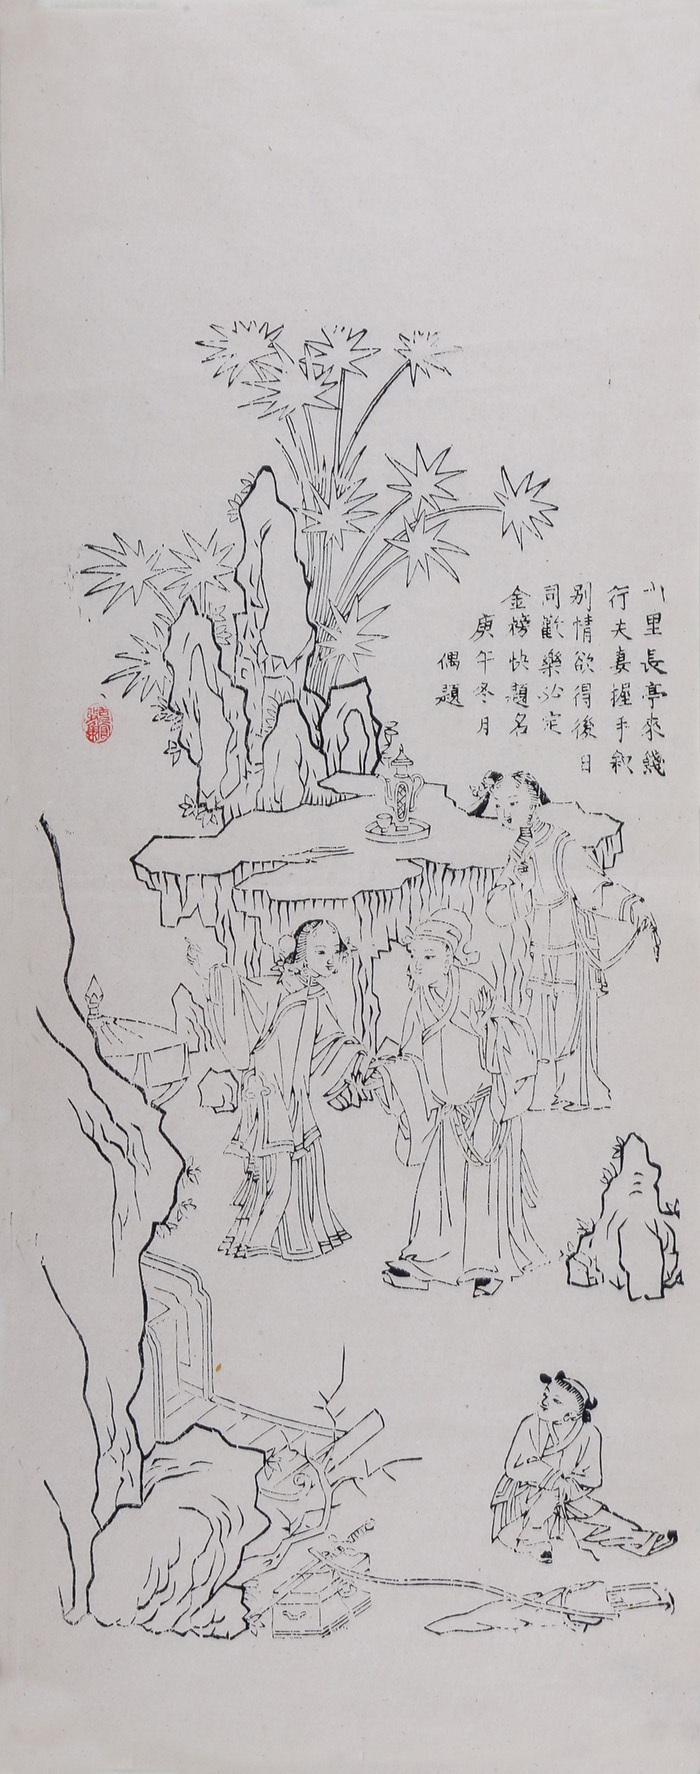 十里長亭來餞
行夫妻握手敘
別情欲得後日
同歡樂必定
金榜快題名
庚午冬月
偶題